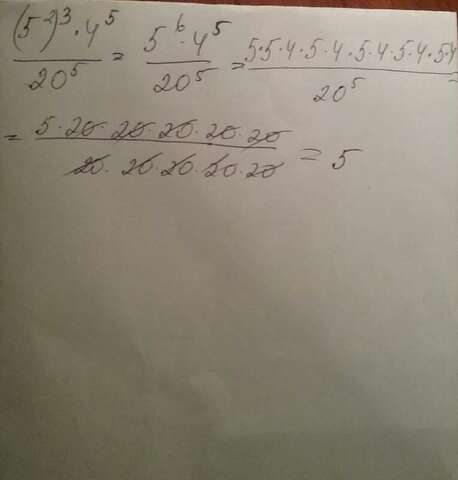 (5²)³·4⁵/20⁵ = 5⁶·4⁵/20⁵ = 5·5·4·5·4·5·4·5·4·5·4/20⁵ =
= 5·20·20·20·20·20/20·20·20·20·20 = 5